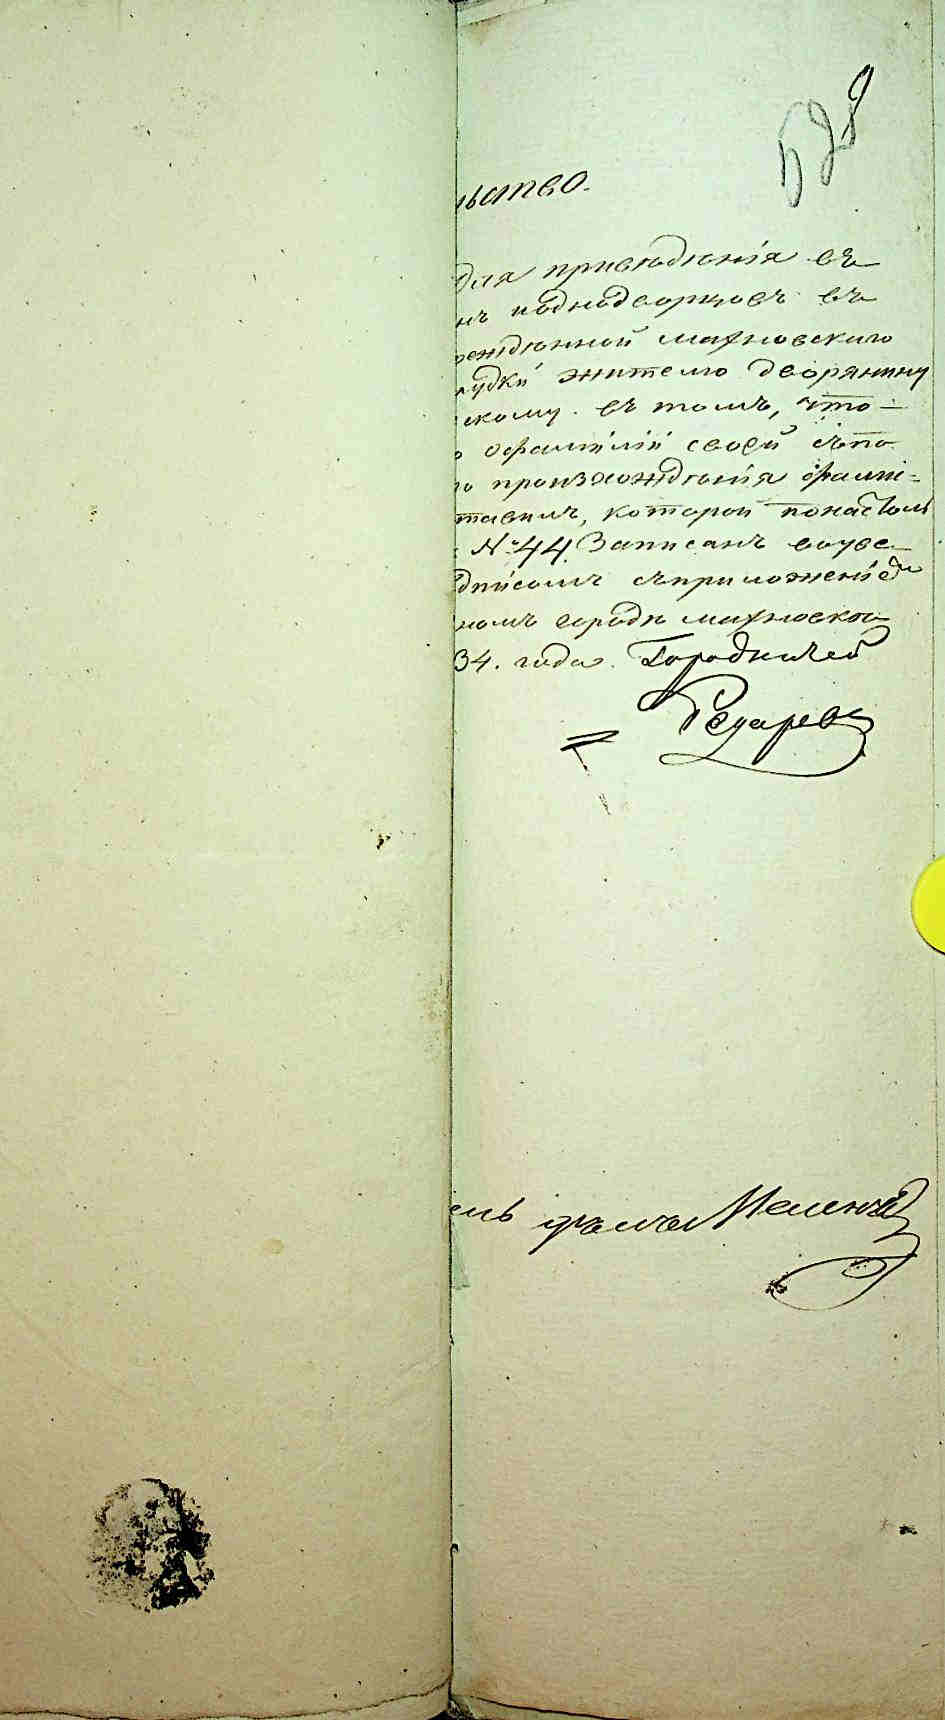 529
льство.
для приведенія въ
нъ иоднодворцовъ въ
режденной махновскаго
удки жителю дворянину
скому. въ томъ, что
о фамиліи своей съпо
го произхожденія фами=
тавилъ, которой понастоль
№ 44 Записанъ воуве
дписомъ съприложеніе
номъ городѣ махновка
34. года. Городничей
ель